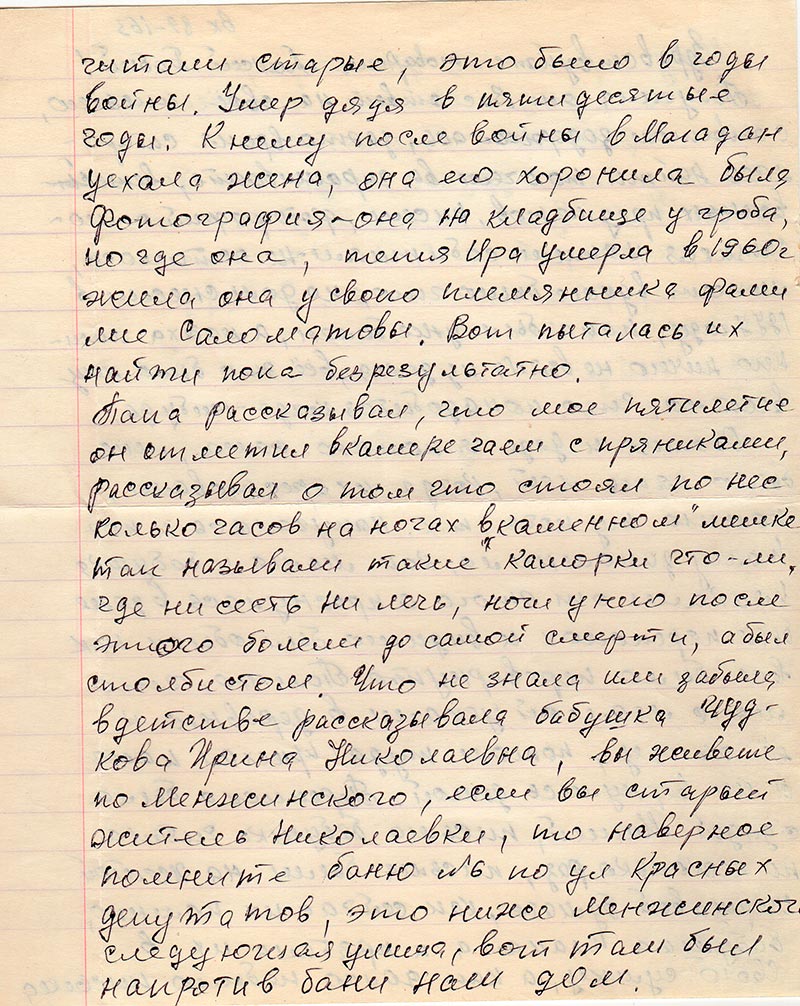 читали старые, это было в годы
войны. Умер дядя в пятидесятые
годы. К нему после войны в Магадан
уехала жена, она его хоронила была
фотография - она на кладбище у гроба,
но где она, тетя Ира умерла в 1960г
жила она у своего племянника фами
лие Саломатовы. Вот пыталась их
найти пока безрезультатно.
Папа рассказывал, что мое пятилетие
он отметил в камере чаем с пряниками,
рассказывал о том что стоял по нес
колько часов на ногах в "каменном" мешке
так называли такие каморки что-ли,
где ни сесть ни лечь, ноги у него после
этого болели до самой смерти, а был
столбистом. Что не знала или забыла
в детстве рассказывала бабушка Чуд-
кова Ирина Николаевна, вы живете
по Менжинского, если вы старый
житель Николаевки, то наверное
помните баню №6 по ул Красных
депутатов, это ниже Менжинского
следующая улица, вот там был
напротив бани наш дом.